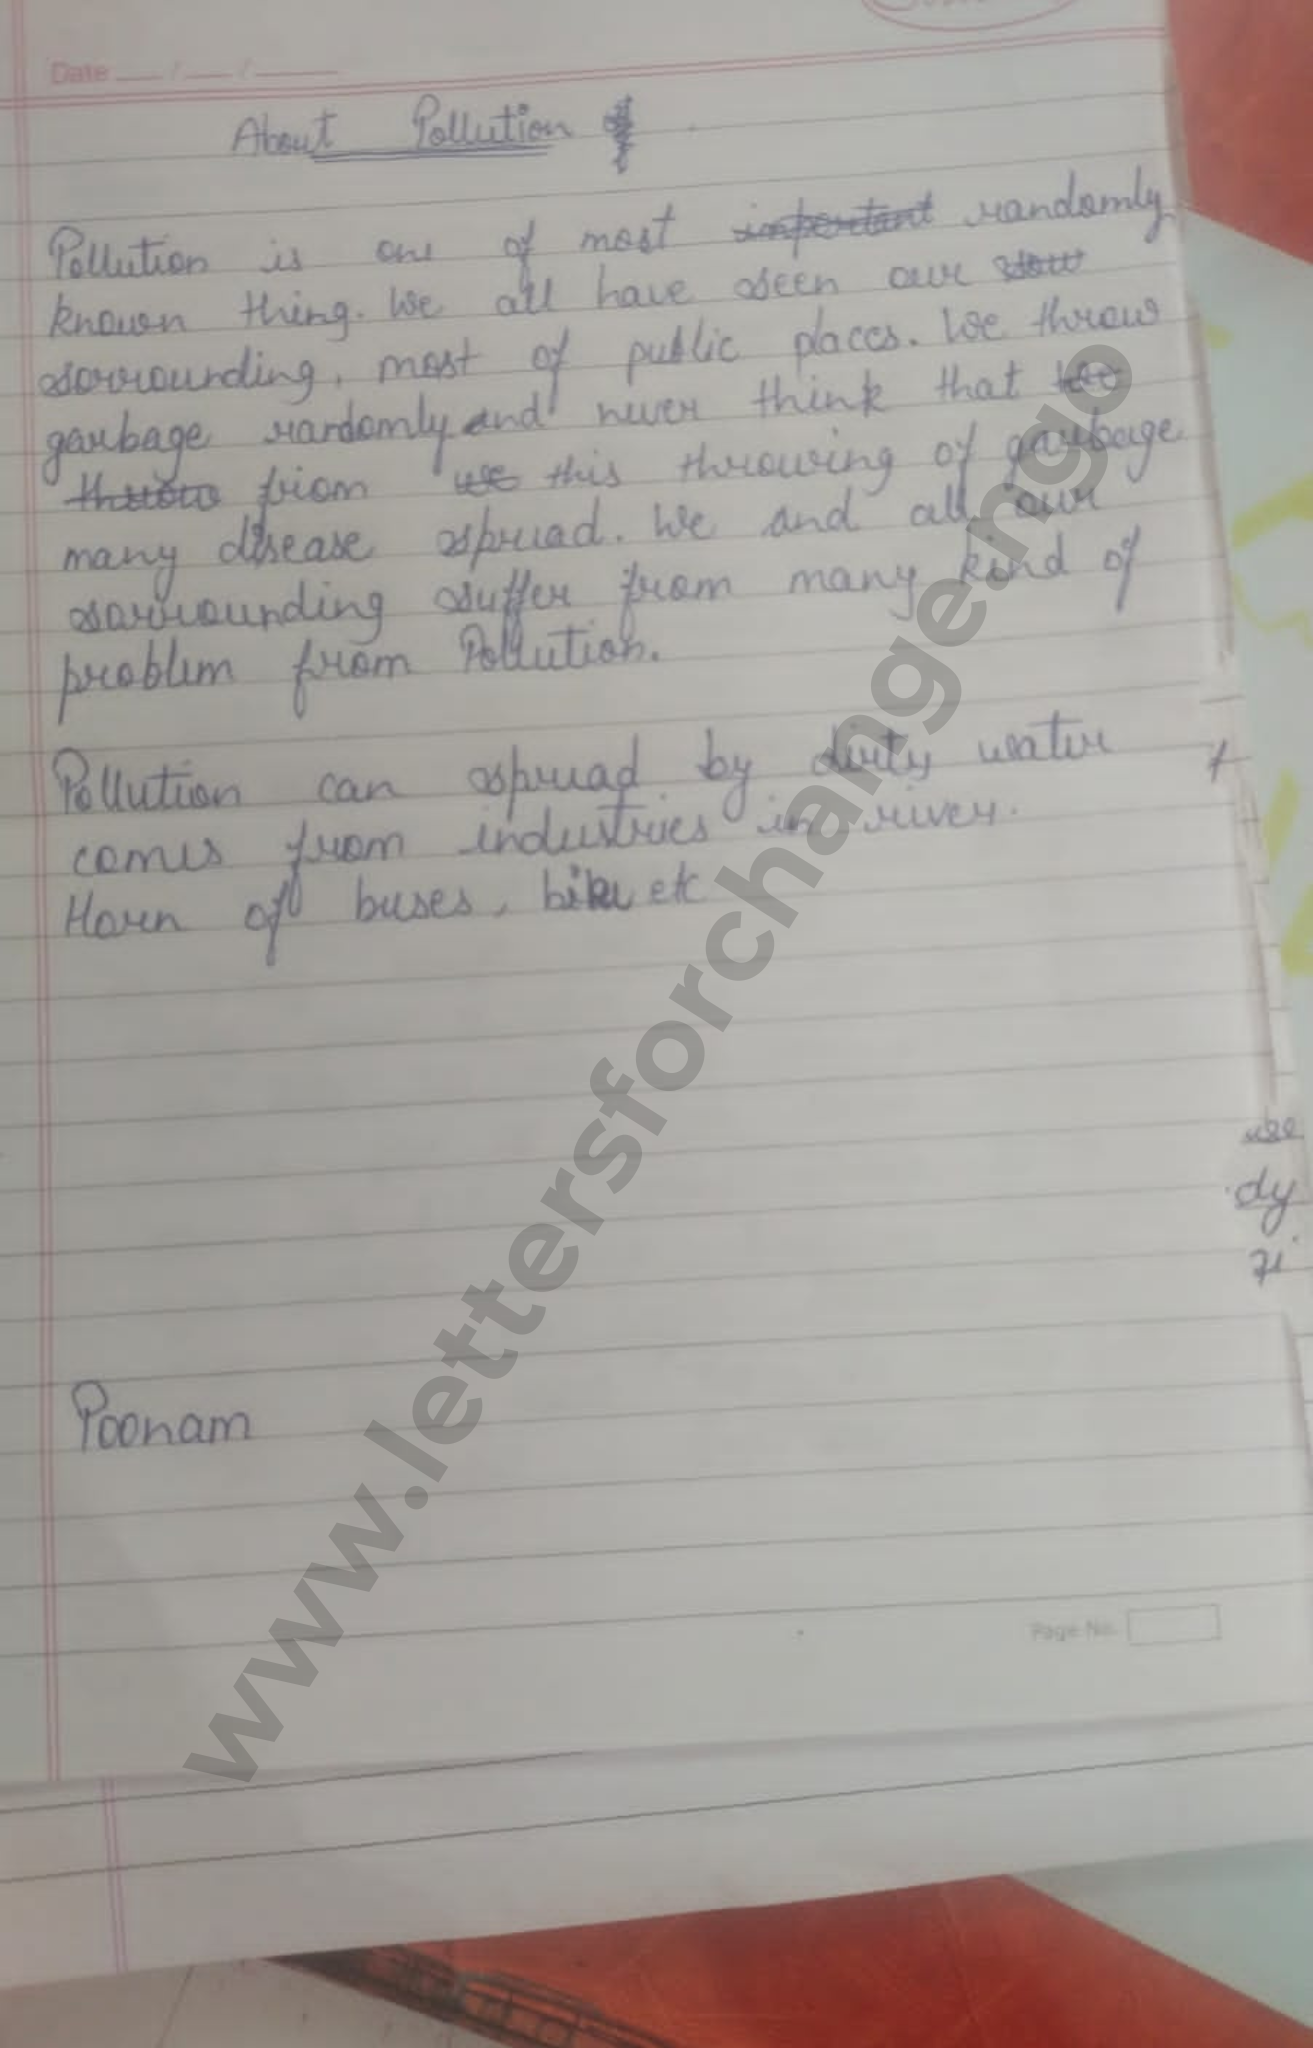 Date
About Pollution
Pollution is one of most important randomly
known thing. We all have seen our
sorrounding, most of public places. We throw
garbage randomly and never think that
throw from we this throwing of garbage
many disease spread. We and all our
sorrounding suffer from many kind of
problem from Pollution.
Pollution can spread by dirty water
comes from industries in river.
Horn of buses, bike etc
use
dy
Poonam
Page No.
www.lettersforchange.ngo